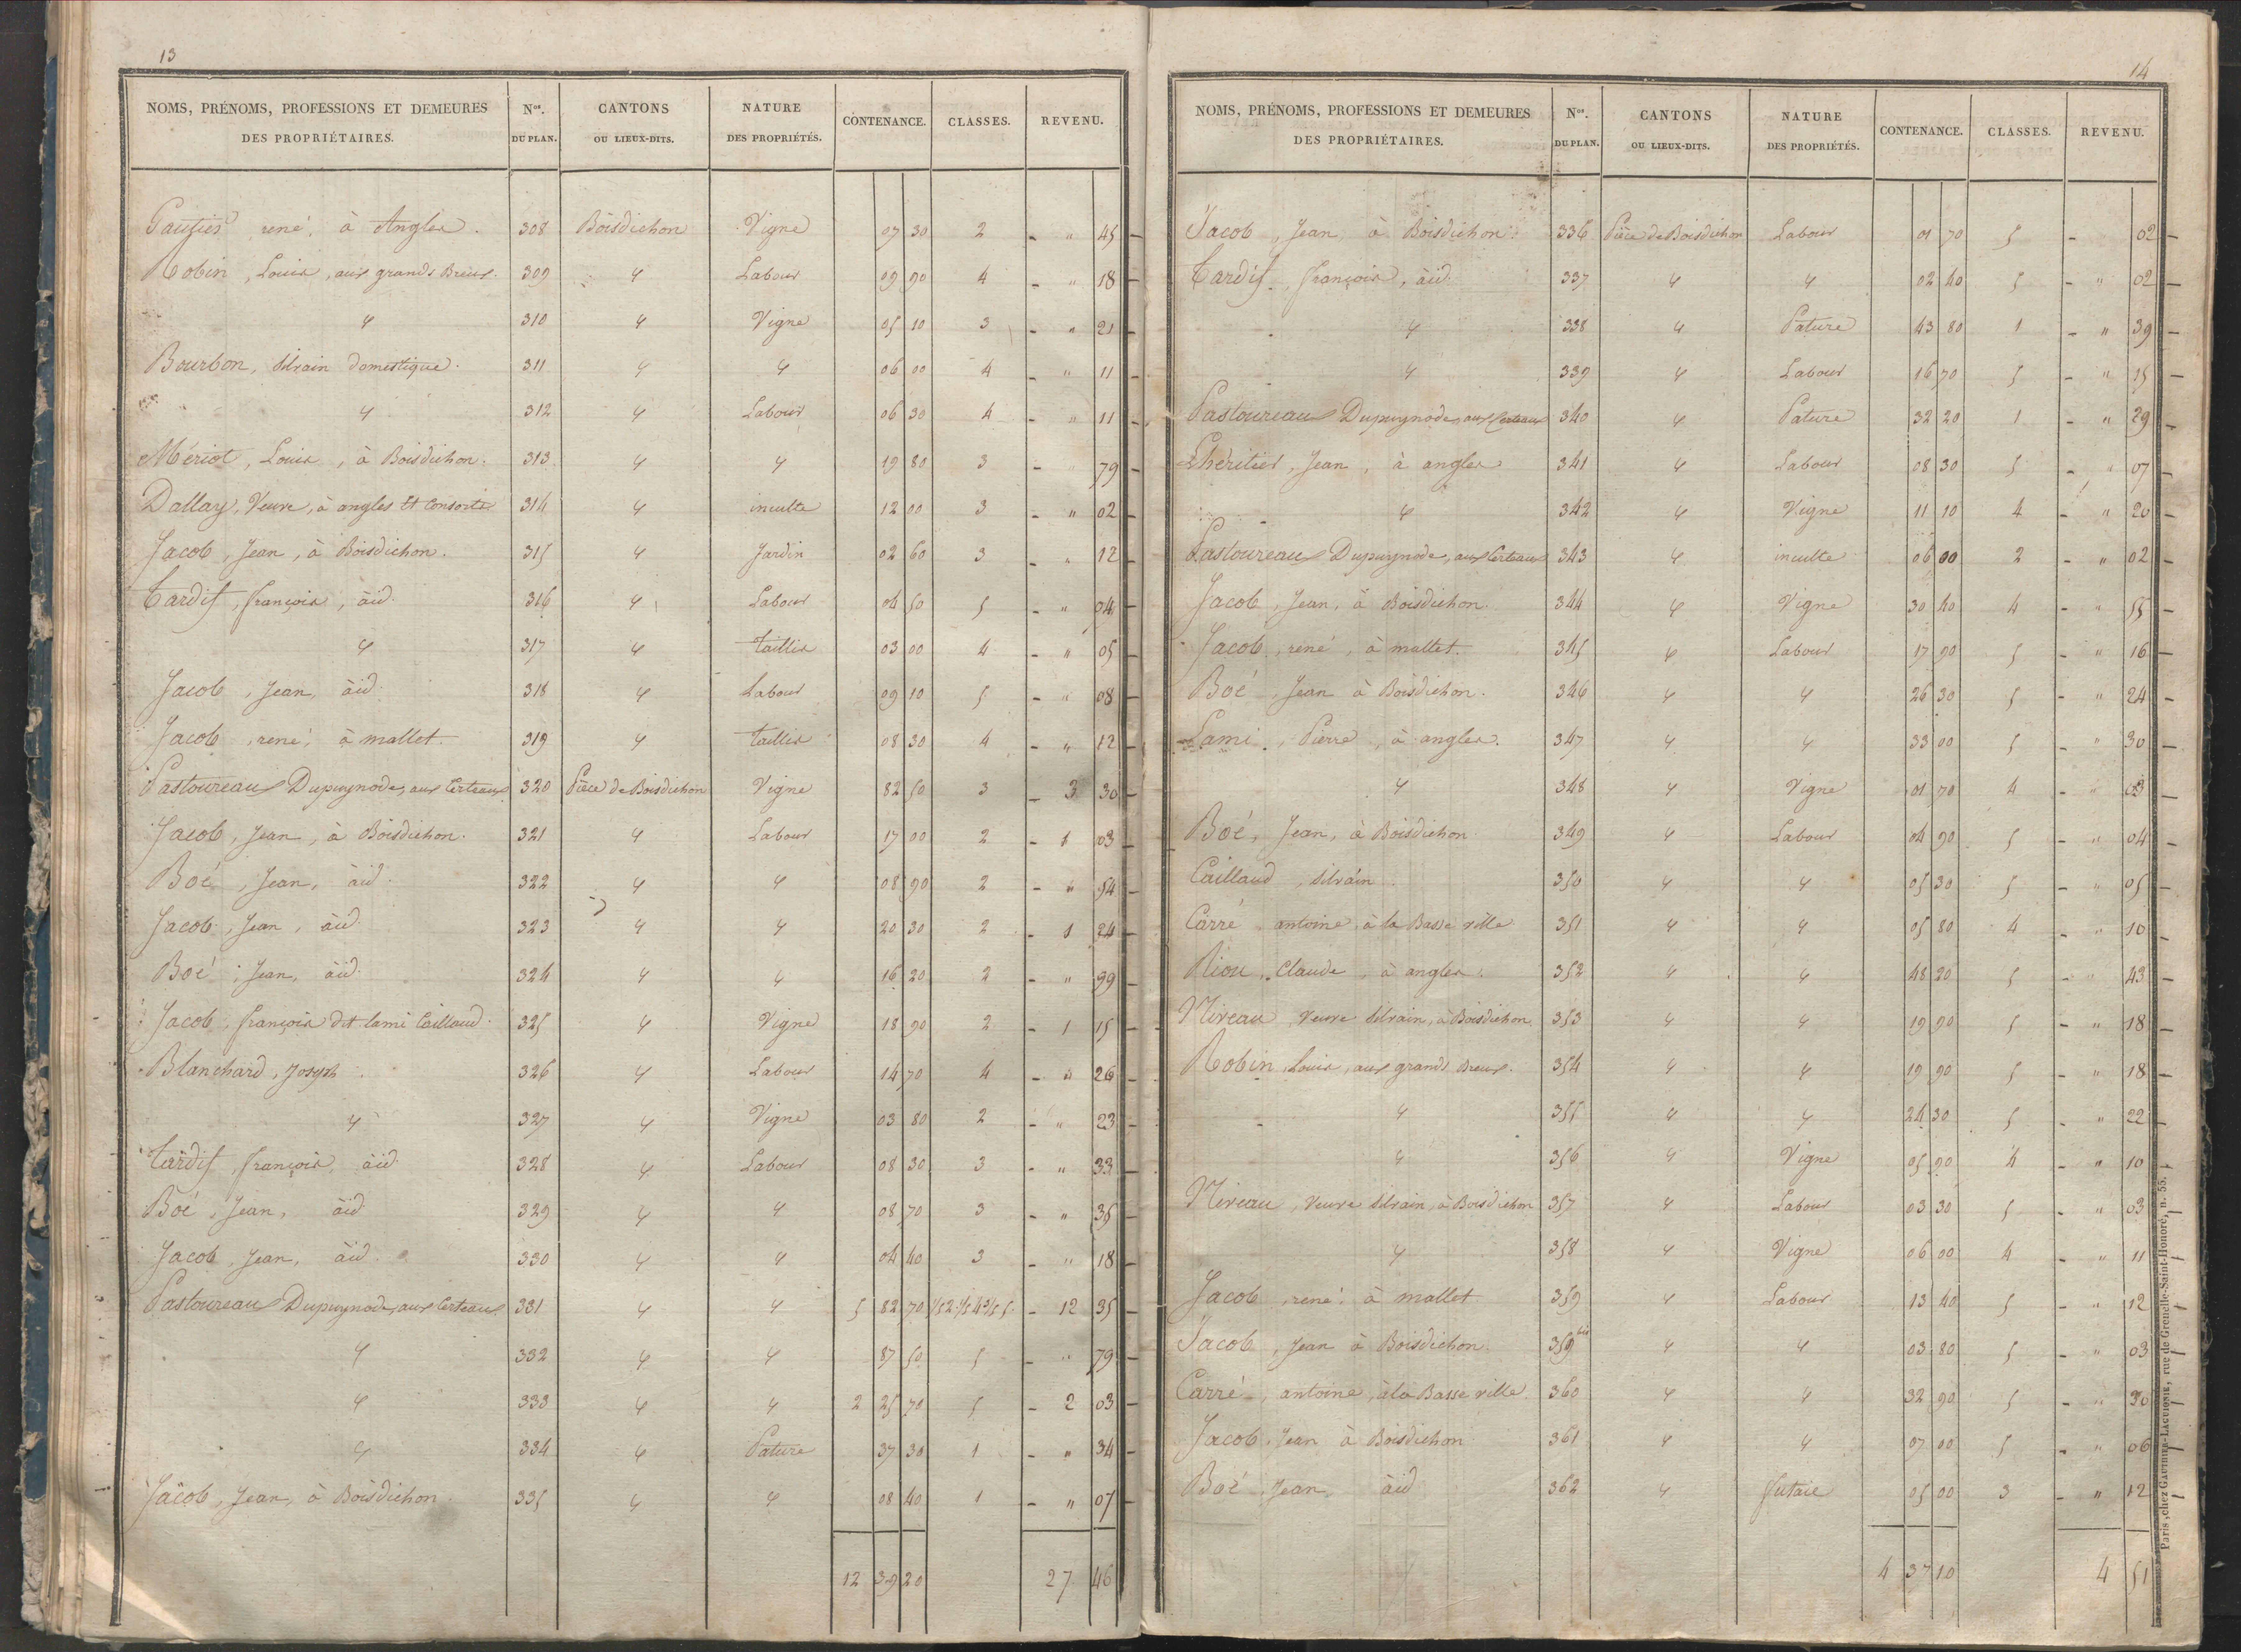 13
NOMS, PRÉNOMS, PROFESSIONS ET DEMEURES DES PROPRIÉTAIRES. Nos. DU PLAN. CANTONS OU LIEUX-DITS. NATURE DES PROPRIÉTÉS. CONTENANCE. CLASSES. REVENU.
rené, à Angles. 308 Boisdichon Vigne 07 30 2 - " 45 -
Robin, Louis, aux grands Breux. 309 " Labour 09 90 4 - " 18 -
" 310 " Vigne 05 10 3 - " 21 -
Bourbon, Silvain domestique. 311 " " 06 00 4 - " 11 -
" 312 " Labour 06 30 4 - " 11 -
Mériot, Louis, à Boisdichon. 313 " " 19 80 3 - " 79 -
Dallay, Veuve, à angles et Consorts 314 " inculte 12 00 3 - " 02 -
Jacob, Jean, à Boisdichon. 315 " Jardin 02 60 3 - " 12 -
Tardif, françois, àid. 316 " Labour 04 50 5 - " 04 -
" 317 " taillis 03 00 4 - " 05 -
Jacob, Jean, àid. 318 " Labour 09 10 5 - " 08 -
Jacob, rené, à mallet. 319 " taillis 08 30 4 - " 12 -
Pastoureau Dupuynode, aux Certeaux 320 Pièce de Boisdichon Vigne 82 50 3 - 3 30 -
Jacob, Jean, à Boisdichon. 321 " Labour 17 00 2 - 1 03 -
Boé, Jean, àid. 322 " " 08 90 2 - " 54 -
Jacob, Jean, àid 323 " " 20 30 2 - 1 24 -
Boé, Jean, àid. 324 " " 16 20 2 - " 99 -
Jacob, françois dit lami Caillaud. 325 " Vigne 18 90 2 - 1 15 -
Blanchard, Joseph. 326 " Labour 14 70 4 - " 26 -
" 327 " Vigne 03 80 2 - " 23 -
Tardif, françois, àid. 328 " Labour 08 30 3 - " 33 -
Boé, Jean, àid 329 " " 08 70 3 - " 35 -
Jacob, Jean, àid. 330 " " 04 40 3 - " 18 -
Pastoureau Dupuynode, aux Certeaux 331 " " 5 82 70 1/5 2 1/5 4 3/5 5 - 12 35 -
" 332 " " 87 50 5 - " 79 -
" 333 " " 2 25 70 5 - 2 03 -
" 334 " Pature 37 30 1 - " 34 -
Jacob, Jean, à Boisdichon. 335 " " 08 40 1 - " 07 -
12 39 20 27 46
14
NOMS, PRÉNOMS, PROFESSIONS ET DEMEURES DES PROPRIÉTAIRES. Nos. DU PLAN. CANTONS OU LIEUX-DITS. NATURE DES PROPRIÉTÉS. CONTENANCE. CLASSES. REVENU.
Jacob, Jean, à Boisdichon. 336 Pièce de Boisdichon Labour 01 70 5 - 02 -
Tardif, françois, àid. 337 " " 02 40 5 - " 02 -
" 338 " Pature 43 80 1 - " 39 -
" 339 " Labour 16 70 5 - " 15 -
Pastoureau Dupuynode, aux Certeaux 340 " Pature 32 20 1 - " 29 -
Lhéritier, Jean, à angles 341 " Labour 08 30 5 - " 07 -
" 342 " Vigne 11 10 4 - " 20 -
Pastoureau Dupuynode, aux Certeaux 343 " inculte 06 00 2 - " 02 -
Jacob, Jean, à Boisdichon. 344 " Vigne 30 40 4 - " 55 -
Jacob, rené, à mallet. 345 " Labour 17 90 5 - " 16 -
Boé, Jean à Boisdichon. 346 " " 26 30 5 - " 24 -
Lami, Pierre, à angles. 347 " " 33 00 5 - " 30 -
" 348 " Vigne 01 70 4 - " 03 -
Boé, Jean, à Boisdichon 349 " Labour 04 90 5 - " 04 -
Caillaud, Silvain. 350 " " 05 30 5 - " 05 -
Carré, antoine, à la Basse ville 351 " " 05 80 4 - " 10 -
Riou, Claude, à angles. 352 " " 48 20 5 - " 43 -
Nireau, veuve Silvain, à Boisdichon. 353 " " 19 90 5 - " 18 -
Robin, Louis, aux grands Breux. 354 " " 19 90 5 - " 18 -
" 355 " " 24 30 5 - " 22 -
" 356 " Vigne 05 90 4 - " 10 -
Nireau, veuve Silvain, à Boisdichon 357 " Labour 03 30 5 - " 03 -
" 358 " Vigne 06 00 4 - " 11 -
Jacob, rené, à mallet 359 " Labour 13 40 5 - " 12 -
Jacob, Jean à Boisdichon. 359 bis " " 03 80 5 - " 03 -
Carré, antoine, à la Basse ville. 360 " " 32 90 5 - " 30 -
Jacob, Jean à Boisdichon 361 " " 07 00 5 - " 06 -
Boé, Jean, àid 362 " futaie 05 00 3 - " 12 -
4 37 10 4 51
Paris, chez GAUTHIER-LAGUIONIE, rue de Grenelle-Saint-Honoré, n. 55.